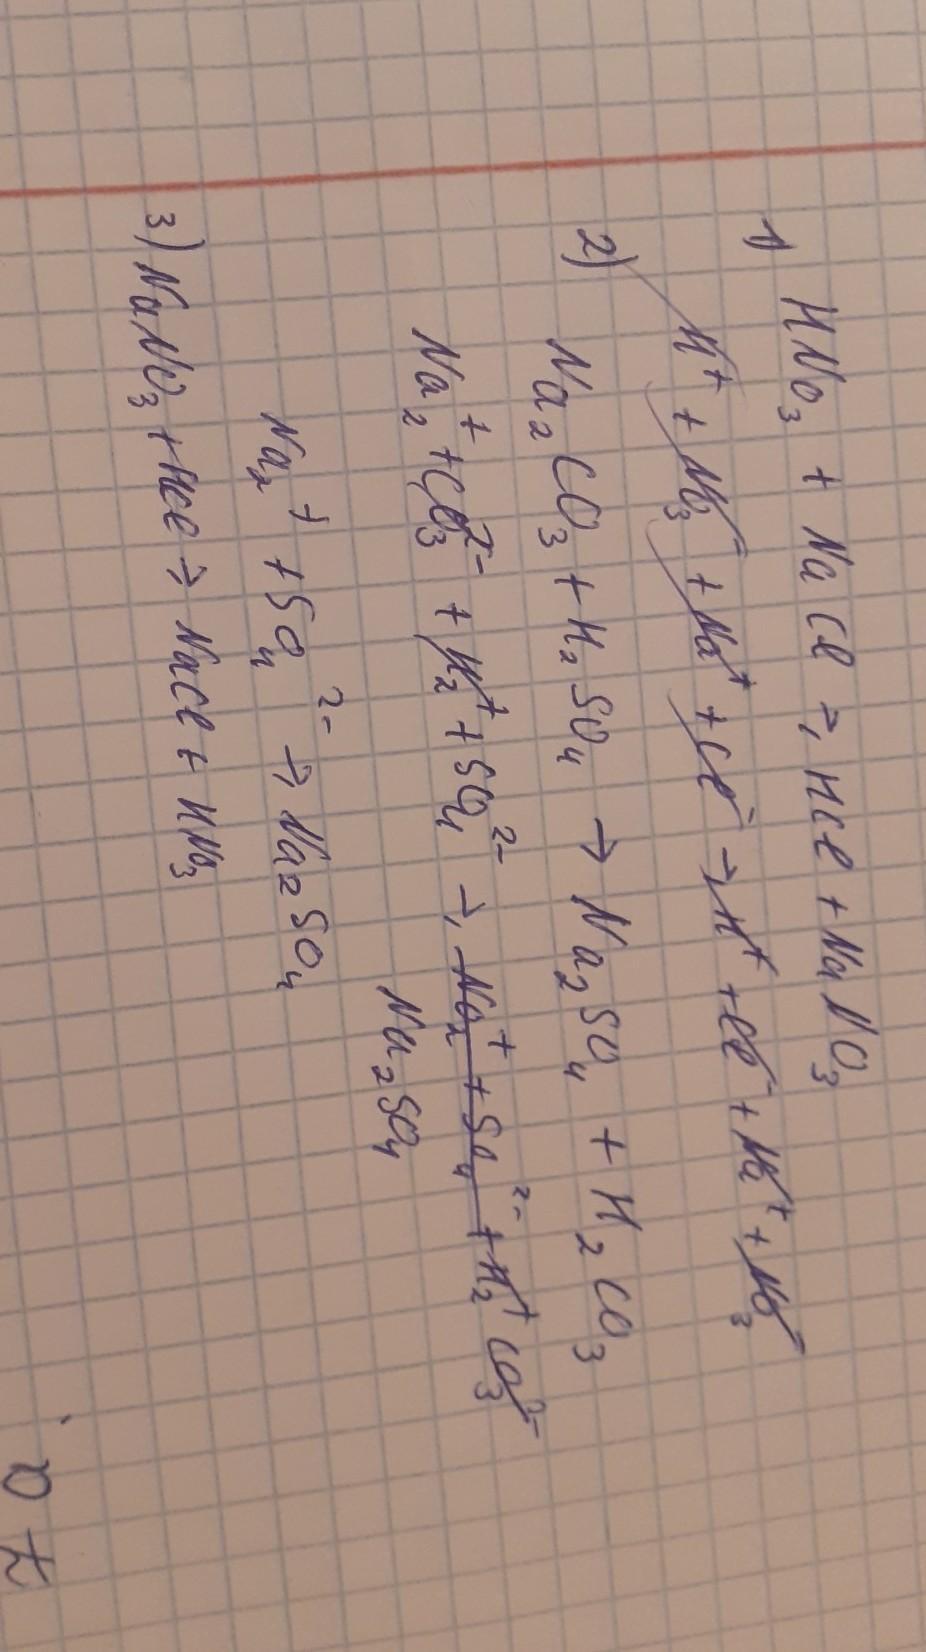 1) HNO₃ + NaCl → HCl + NaNO₃
H⁺ + NO₃⁻ + Na⁺ + Cl⁻ → H⁺ + Cl⁻ + Na⁺ + NO₃⁻
2) Na₂CO₃ + H₂SO₄ → Na₂SO₄ + H₂CO₃
Na₂⁺ + CO₃²⁻ + H₂⁺ + SO₄²⁻ → Na₂⁺ + SO₄²⁻ + H₂⁺ CO₃²⁻
Na₂SO₄
Na₂⁺ + SO₄²⁻ → Na₂SO₄
3) NaNO₃ + HCl → NaCl + HNO₃